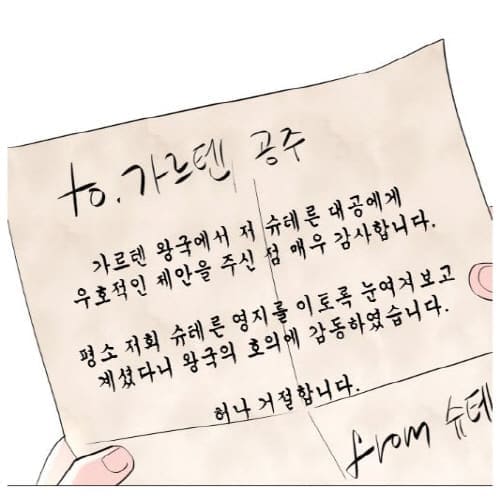 to. 가르텐 공주
가르텐 왕국에서 저 슈테른 대공에게
우호적인 제안을 주신 점 매우 감사합니다.
평소 저희 슈테른 영지를 이토록 눈여겨보고
계셨다니 왕국의 호의에 감동하였습니다.
허나 거절합니다.
from 슈테